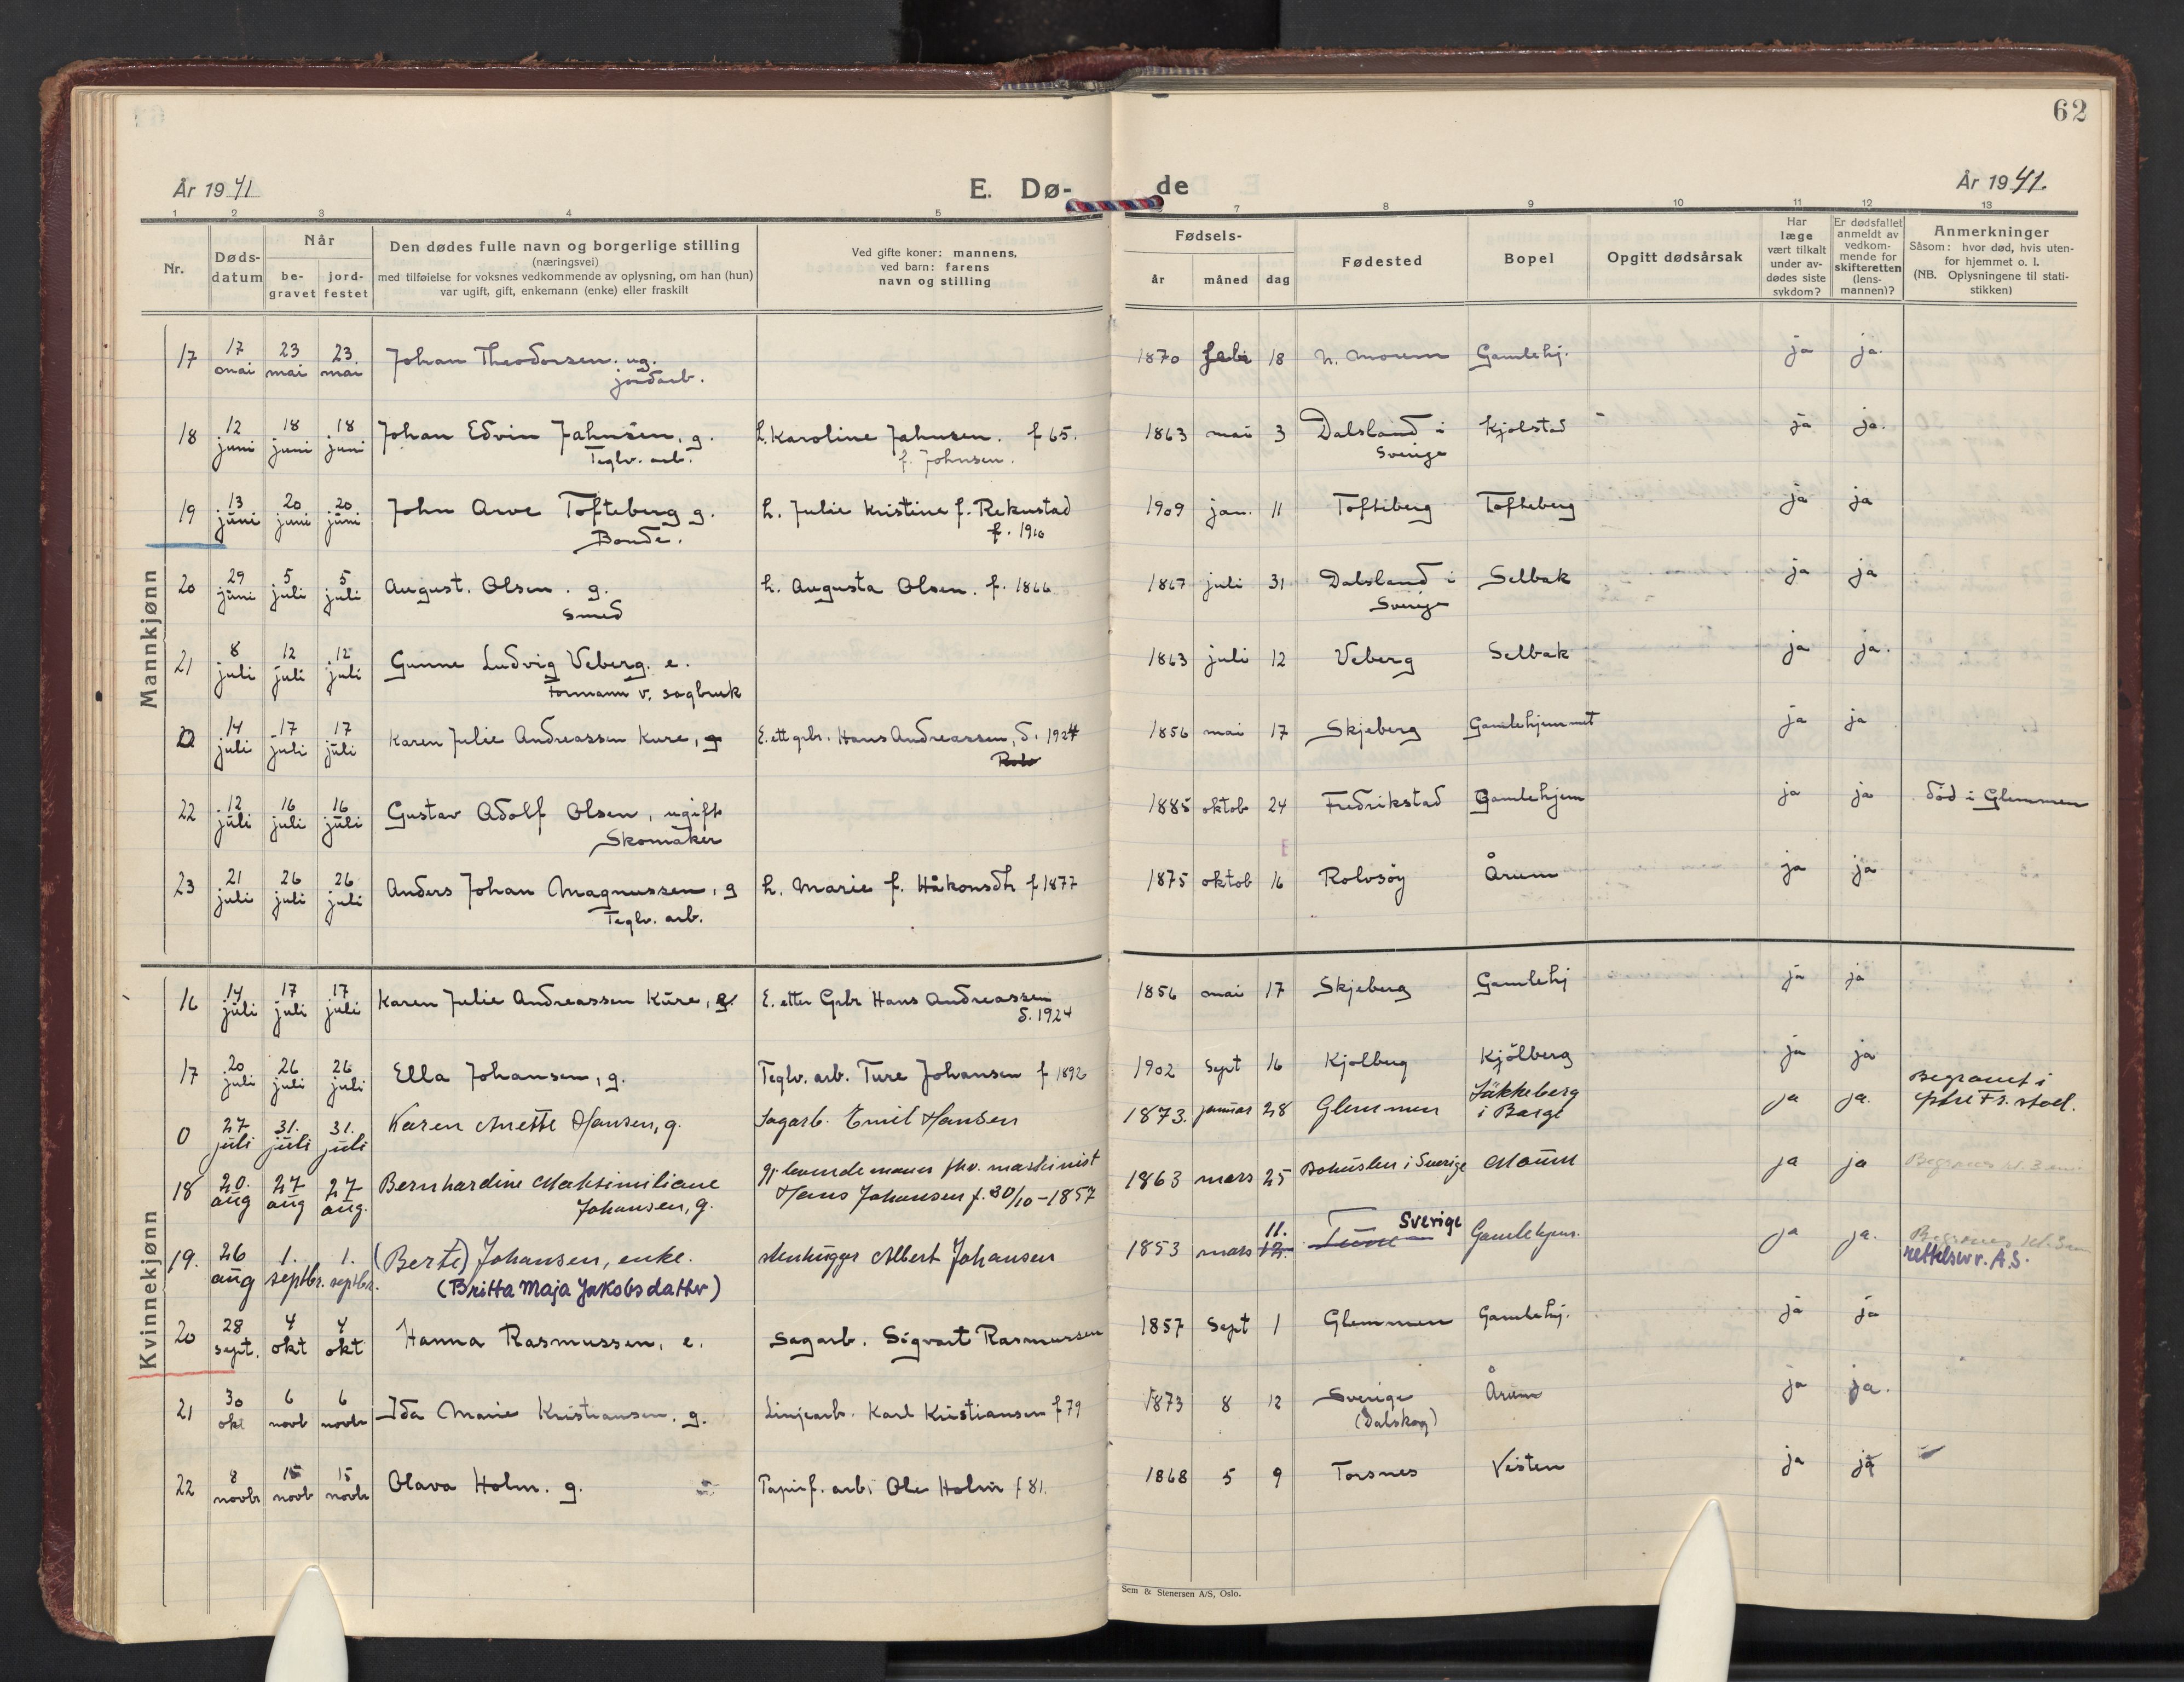 62
År 1941
E. Dø-
de
År 1941.
1 2 3 4 5 7 8 9 10 11 12 13
Nr.
Døds-
datum
Når
be-
gravet
jord-
festet
Den dødes fulle navn og borgerlige stilling
(næringsvei)
med tilføielse for voksnes vedkommende av oplysning, om han (hun)
var ugift, gift, enkemann (enke) eller fraskilt
Ved gifte koner: mannens,
ved barn: farens
navn og stilling
Fødsels-
år måned dag
Fødested
Bopel
Opgitt dødsårsak
Har
læge
vært tilkalt
under av-
dødes siste
sykdom?
Er dødsfallet
anmeldt av
vedkom-
mende for
skifteretten
(lens-
mannen)?
Anmerkninger
Såsom: hvor død, hvis uten-
for hjemmet o. l.
(NB. Oplysningene til stati-
stikken)
Mannkjønn
17 17 mai 23 mai 23 mai Johan Theodorsen. ug. 1870 febr 18 Gamlehj. ja ja.
jordarb.
18 12 juni 18 juni 18 juni Johan Edvin Jahnsen, g. h. Karoline Jahnsen. f 65. 1863 mai 3 Dalsland i Kjolstad ja ja.
Teglv. arb. f. Johnsen. Sverige
19 13 juni 20 juni 20 juni John Arve Tofteberg g. h. Julie Kristine f. Rekustad 1909 jan. 11 Tofteberg Tofteberg ja ja
Bonde. f. 1910
20 29 juni 5 juli 5 juli August. Olsen. g. h. Augusta Olsen. f. 1866 1867 juli 31 Dalsland i Selbak ja ja
Smed Sverige
21 8 juli 12 juli 12 juli Gunne Ludvig Veberg. e. 1863 juli 12 Veberg Selbak ja ja.
Formann v. sagbruk
14 juli 17 juli 17 juli Karen Julie Andreassen Kure, g E. ett grbr. Hans Andreassen, d. 1924 1856 mai 17 Skjeberg Gamlehjemmet ja ja
22 12 juli 16 juli 16 juli Gustav Adolf Olsen, ugift 1885 oktob 24 Fredrikstad Gamlehjem ja ja död i Glemmen
Skomaker
23 21 juli 26 juli 26 juli Anders Johan Magnussen, g h. Marie f. Håkonsdtr f 1877 1875 oktob 16 Rolvsöy Årum ja ja
Teglv. arb.
Kvinnekjønn
16 14 juli 17 juli 17 juli Karen Julie Andreassen Kure, e E. etter Grbr Hans Andreassen 1856 mai 17 Skjeberg Gamlehj ja ja
d. 1924
17 20 juli 26 juli 26 juli Ella Johansen, g. Teglv. arb. Ture Johansen f 1892 1902 Sept 16 Kjolberg Kjölberg ja ja
0 27 juli 31. juli 31. juli Karen Anette Hansen, g. Sagarb. Emil Hansen 1873. januar 28 Glemmen Säkkeberg i Borge ja ja. Begravet i
18 20. aug 27 aug 27 aug. Bernhardine Maksimiliane gj. levende mann fhv. maskinist 1863 mars 25 Bohuslen i Sverige Moum ja ja
Johansen, g. Hans Johansen f. 30/10-1857
19. 26 aug 1. septbr. 1. septbr. (Berte) Johansen, enke. stenhugger Albert Johansen 1853 mars 12. 11. Tune Sverige Gamlehjem. ja ja.
(Britta Maja Jakobsdatter) rettelser v. A.S.
20 28 sept. 4 okt 4 okt Hanna Rasmussen, e. Sagarb. Sigvart Rasmussen 1857 Sept 1 Glemmen Gamlehj. ja ja
21 30 okt 6 novb 6 novbr Ida Marie Kristiansen. g. Linjearb. Karl Kristiansen f 79 1873 8 12 Sverige Årum ja ja.
(Dalskog)
22 8 novbr 15 novb 15 novbr Olava Holm. g. Papirf. arb. Ole Holm f 81. 1868 5 9 Torsnes Visten ja ja
Sem & Stenersen A/S, Oslo.